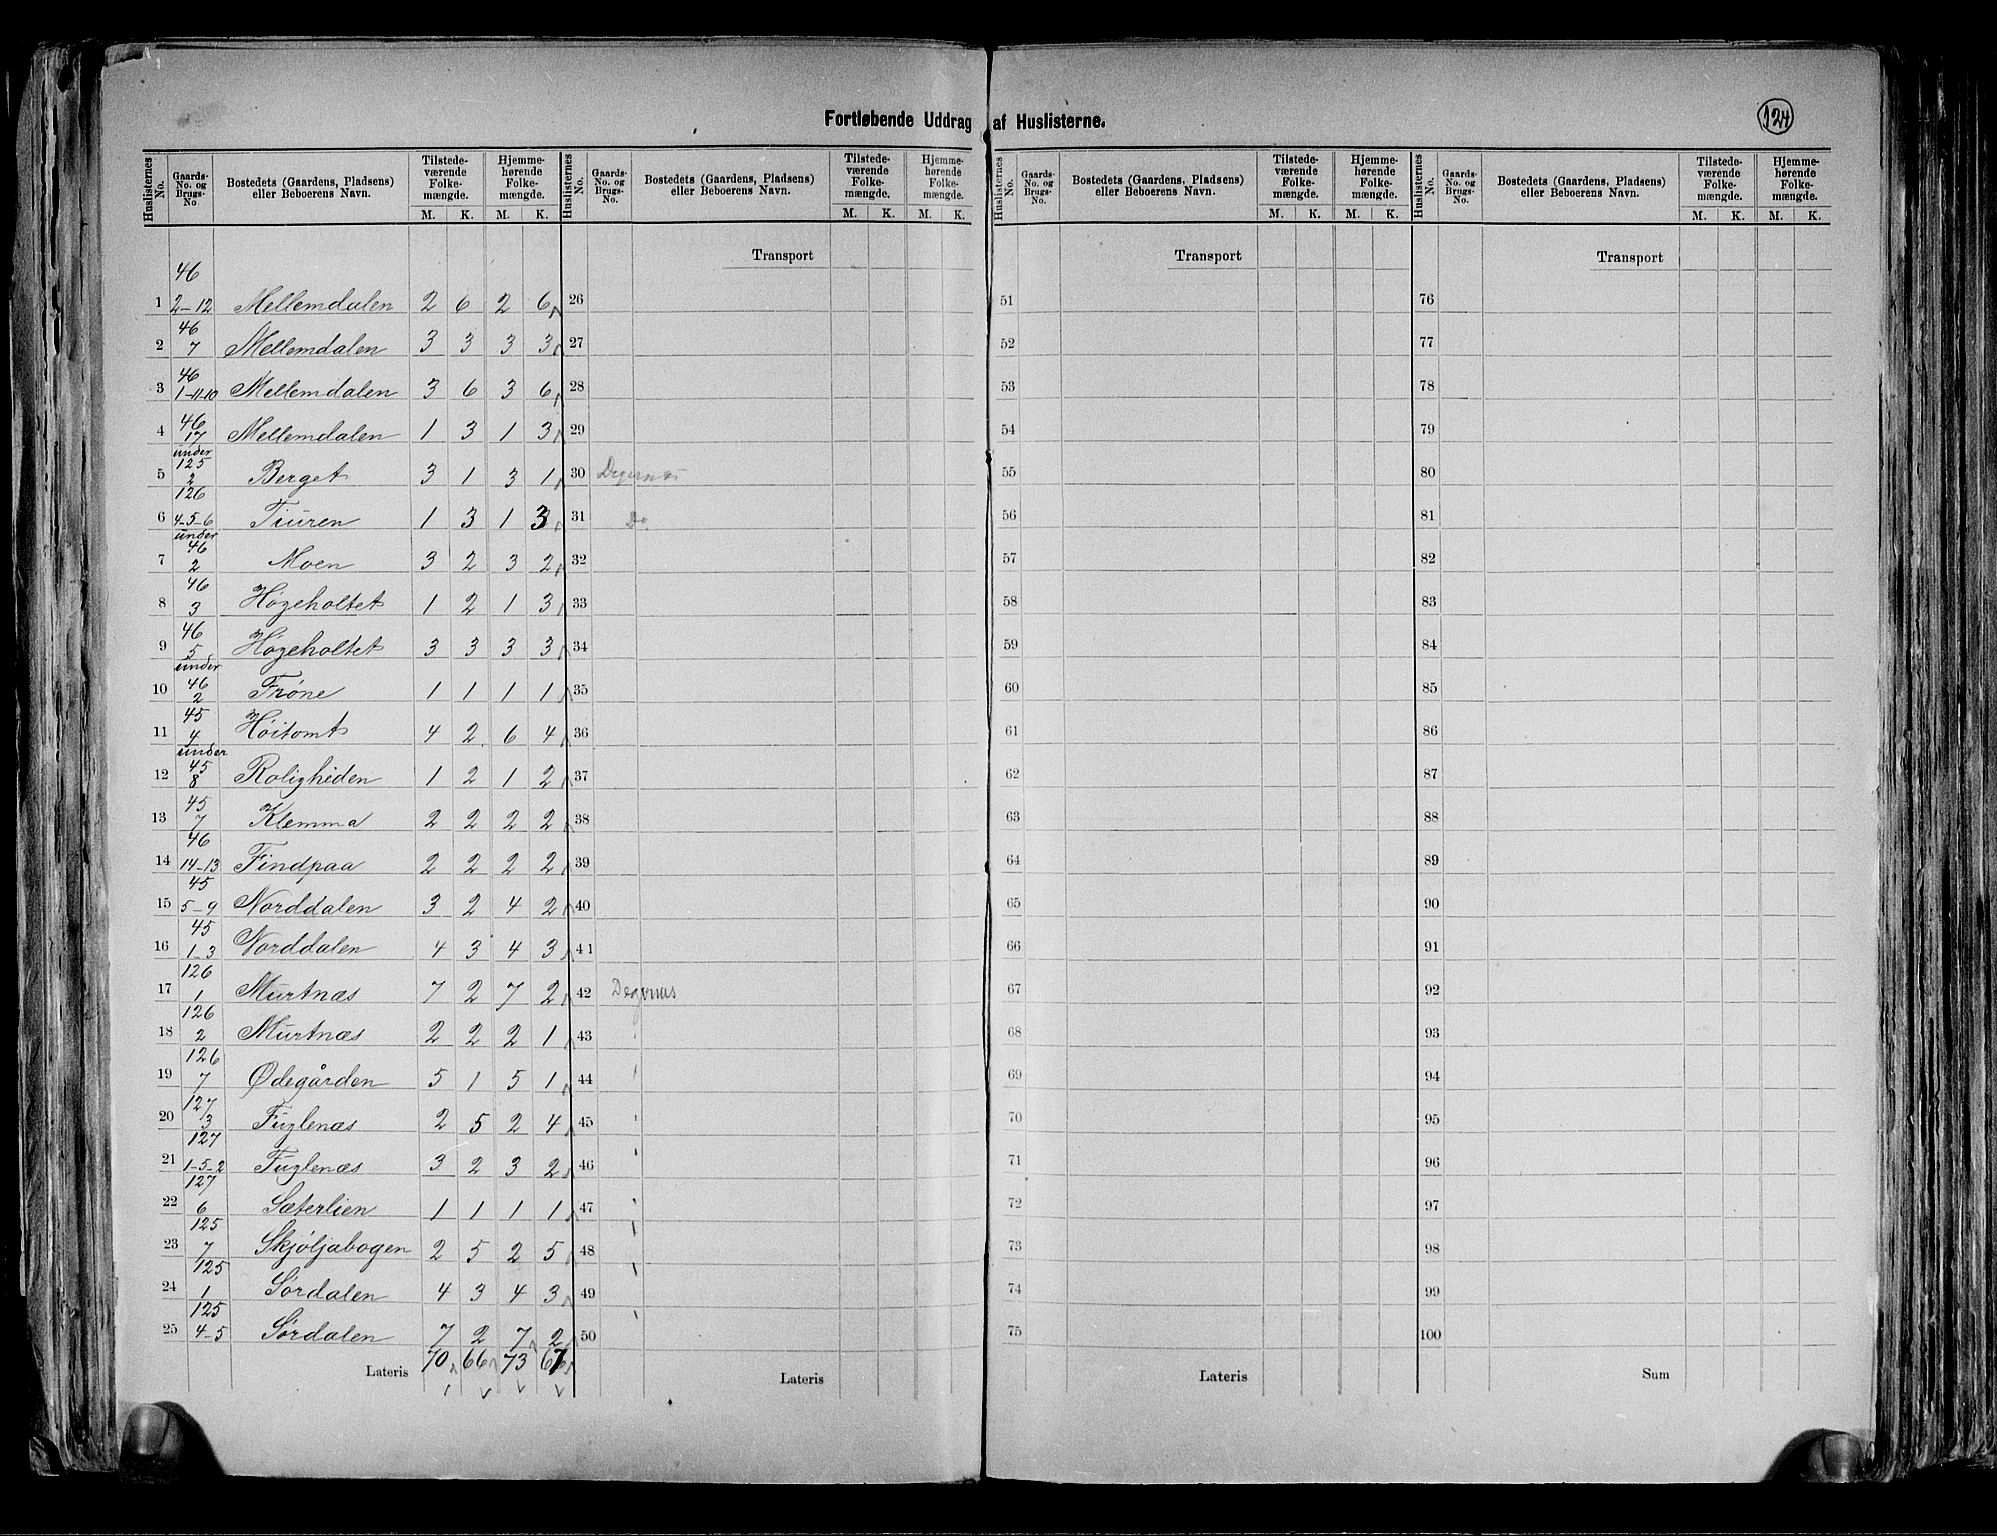 Fortløbende Uddrag af Huslisterne.
124
Huslisternes No. | Gaards-No. og Brugs-No | Bostedets (Gaardens, Pladsens) eller Beboerens Navn. | Tilstedeværende Folkemængde. M. K. | Hjemmehørende Folkemængde. M. K.
Huslisternes No. | Gaards-No. og Brugs-No. | Bostedets (Gaardens, Pladsens) eller Beboerens Navn. | Tilstedeværende Folkemængde. M. K. | Hjemmehørende Folkemængde. M. K.
Huslisternes No. | Gaards-No. og Brugs-No. | Bostedets (Gaardens, Pladsens) eller Beboerens Navn. | Tilstedeværende Folkemængde. M. K. | Hjemmehørende Folkemængde. M. K.
Huslisternes No. | Gaards-No. og Brugs-No. | Bostedets (Gaardens, Pladsens) eller Beboerens Navn. | Tilstedeværende Folkemængde. M. K. | Hjemmehørende Folkemængde. M. K.
Transport Transport Transport
46
1 2-12 Mellemdalen 2 6 2 6 26 51 76
46
2 7 Mellemdalen 3 3 3 3 27 52 77
46
3 1-11-10 Mellemdalen 3 6 3 6 28 53 78
46
4 17 Mellemdalen 1 3 1 3 29 54 79
under
125
5 2 Berget 3 1 3 1 30 Degernæs 55 80
126
6 4-5-6 Tiuren 1 3 1 3 31 Do 56 81
under
46
7 2 Moen 3 2 3 2 32 57 82
46
8 3 Høgeholtet 1 2 1 3 33 58 83
46
9 5 Høgeholtet 3 3 3 3 34 59 84
under
46
10 2 Frøne 1 1 1 1 35 60 85
45
11 4 Høitomt 4 2 6 4 36 61 86
under
45
12 8 Roligheden 1 2 1 2 37 62 87
45
13 7 Klemma 2 2 2 2 38 63 88
46
14 14-13 Findpaa 2 2 2 2 39 64 89
45
15 5-9 Norddalen 3 2 4 2 40 65 90
45
16 1-3 Norddalen 4 3 4 3 41 66 91
126
17 1 Murtnæs 7 2 7 2 42 Degernæs 67 92
126
18 2 Murtnæs 2 2 2 1 43 68 93
126
19 7 Ødegården 5 1 5 1 44 69 94
127
20 3 Fuglenæs 2 5 2 4 45 70 95
127
21 1-5-2 Fuglenæs 3 2 3 2 46 71 96
127
22 6 Sæterlien 1 1 1 1 47 72 97
125
23 7 Skjøljabogen 2 5 2 5 48 73 98
125
24 1 Sørdalen 4 3 4 3 49 74 99
125
25 4-5 Sørdalen 7 2 7 2 50 75 100
Lateris 70 66 73 67 Lateris Lateris Sum